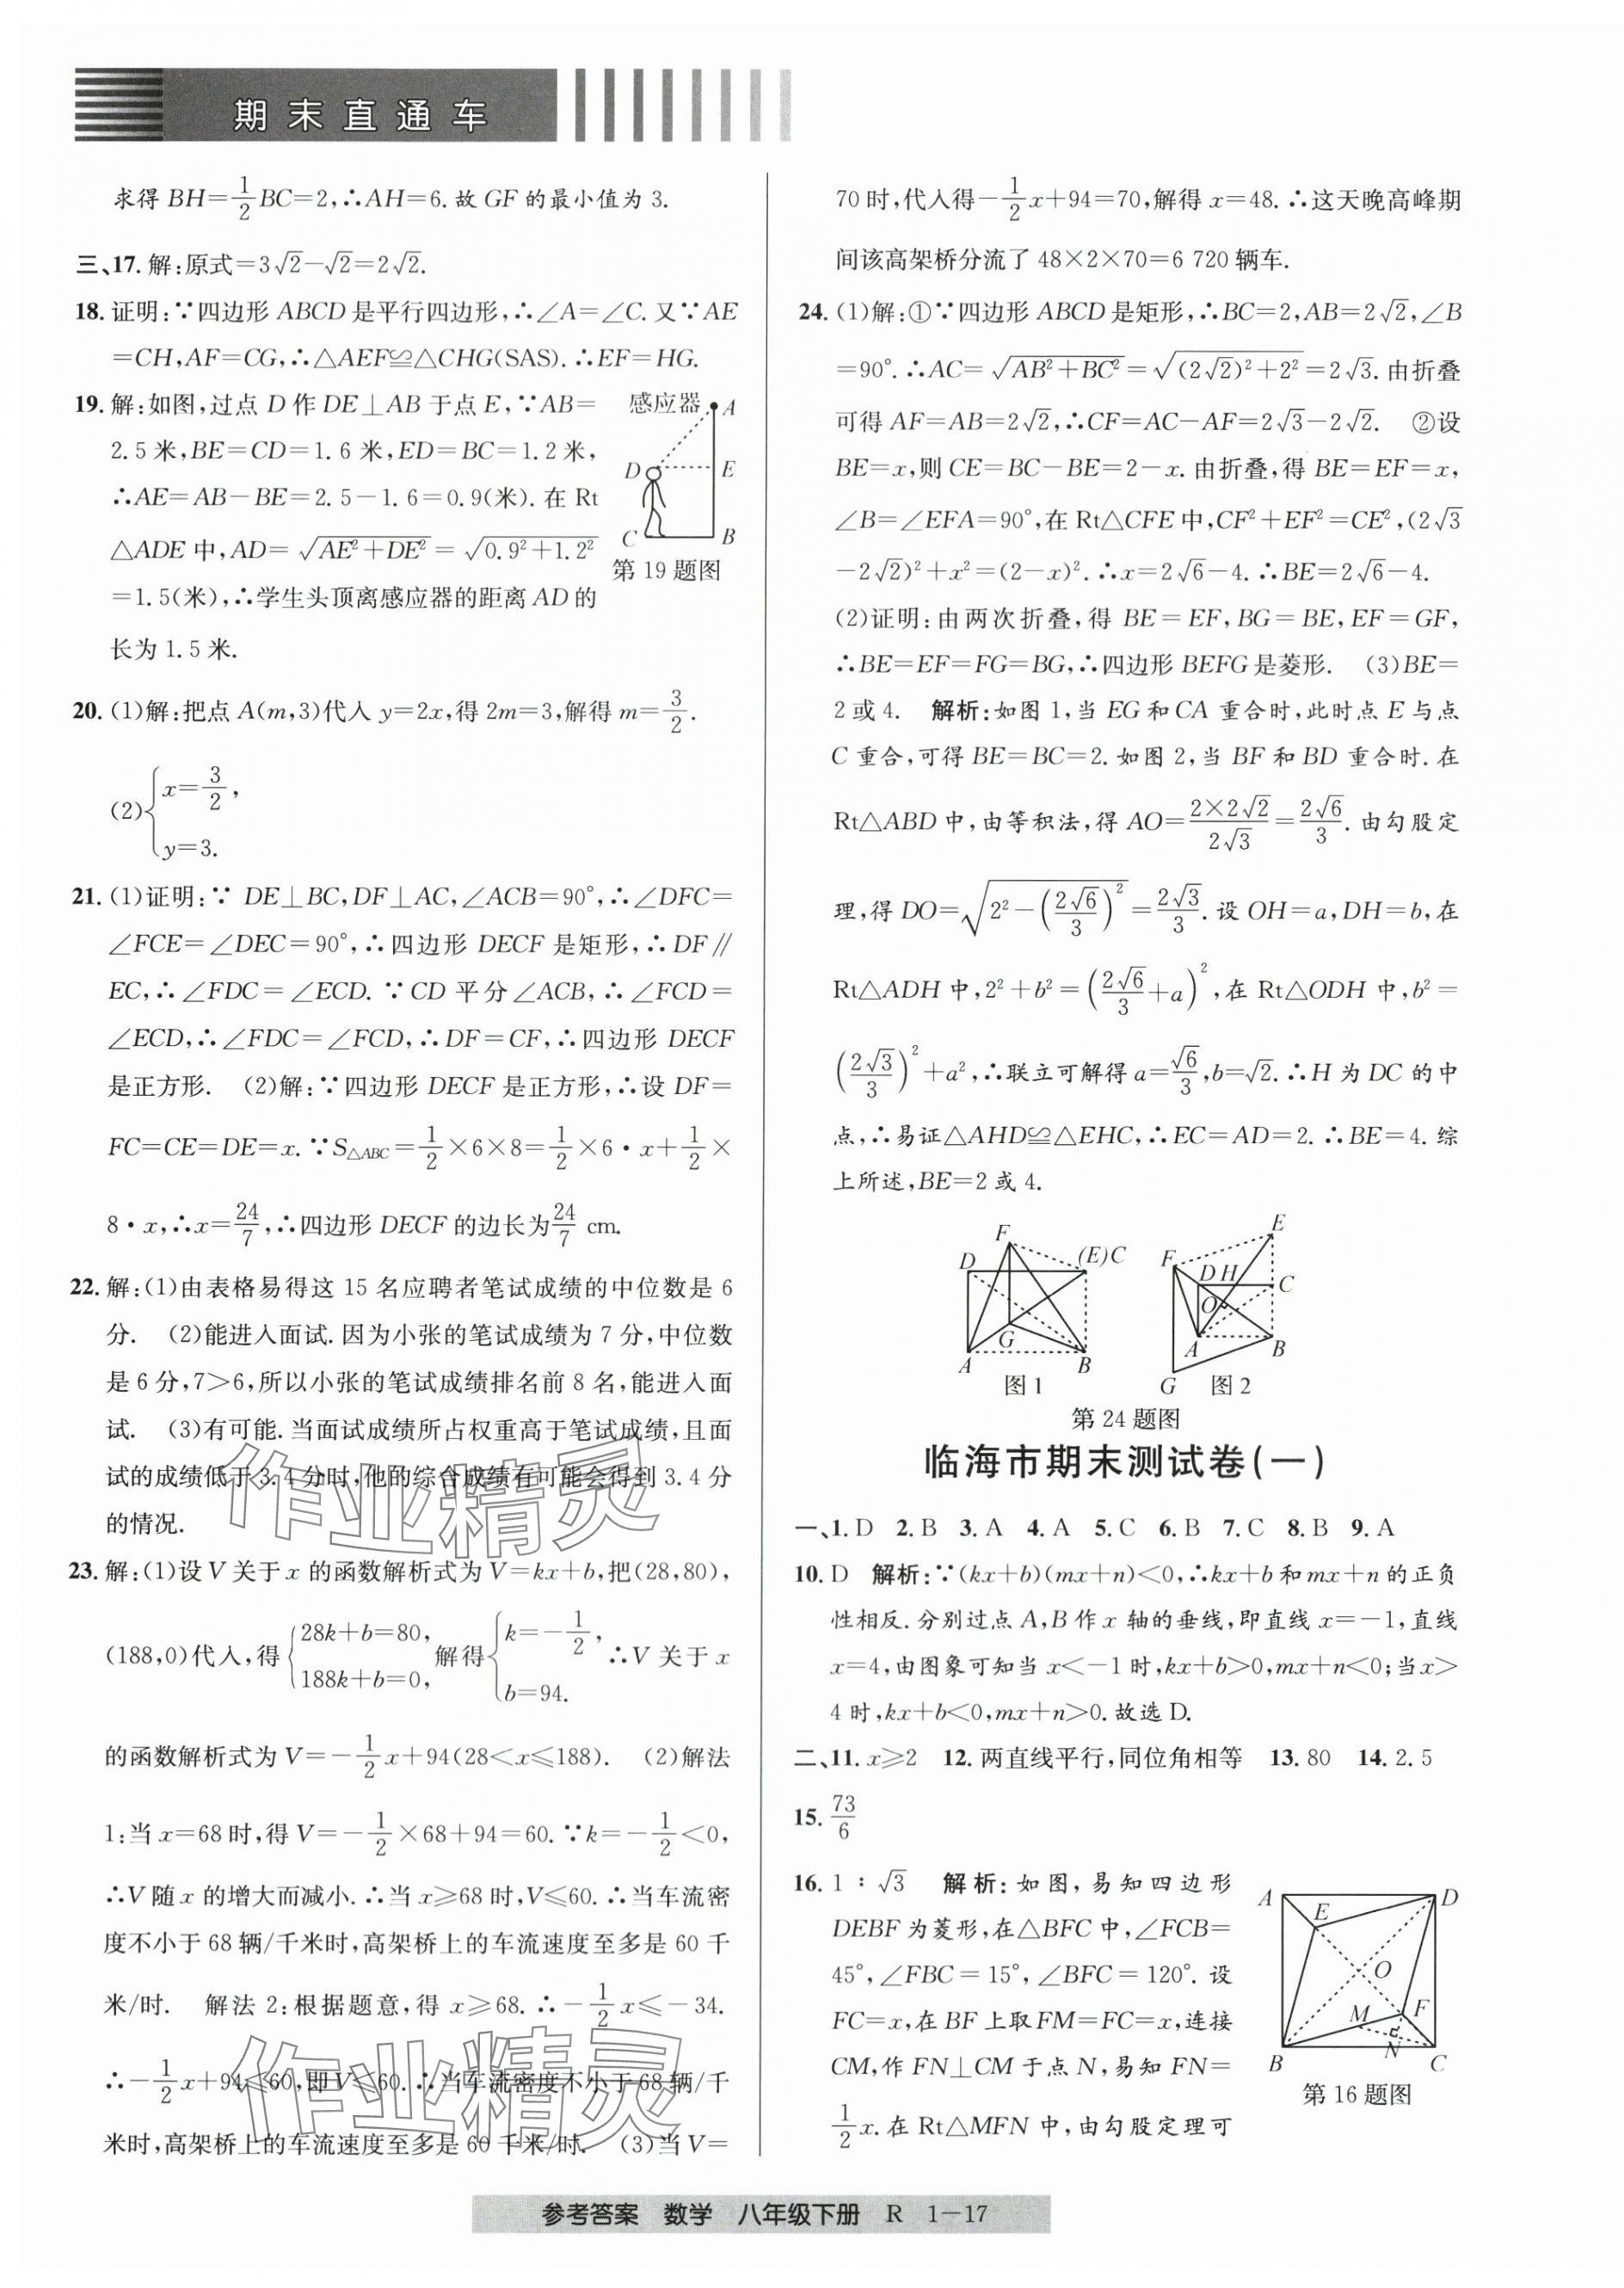 期末直通车
求得 BH=1/2BC=2,∴AH=6.故 GF 的最小值为 3.
三、17.解:原式=3√2-√2=2√2.
18.证明:∵四边形 ABCD 是平行四边形,∴∠A=∠C.又∵AE
=CH,AF=CG,∴△AEF≌△CHG(SAS).∴EF=HG.
19.解:如图,过点 D 作 DE⊥AB 于点 E,∵AB=
2.5 米,BE=CD=1.6 米,ED=BC=1.2 米,
∴AE=AB-BE=2.5-1.6=0.9(米).在 Rt
△ADE 中,AD=√(AE²+DE²)=√(0.9²+1.2²)
=1.5(米),∴学生头顶离感应器的距离 AD 的
长为 1.5 米.
感应器 A
D E
C B
第 19 题图
20.(1)解:把点 A(m,3)代入 y=2x,得 2m=3,解得 m=3/2.
(2){x=3/2,
y=3.
21.(1)证明:∵ DE⊥BC,DF⊥AC,∠ACB=90°,∴∠DFC=
∠FCE=∠DEC=90°,∴四边形 DECF 是矩形,∴DF∥
EC,∴∠FDC=∠ECD.∵CD 平分∠ACB,∴∠FCD=
∠ECD,∴∠FDC=∠FCD,∴DF=CF,∴四边形 DECF
是正方形. (2)解:∵四边形 DECF 是正方形,∴设 DF=
FC=CE=DE=x.∵S△ABC=1/2×6×8=1/2×6·x+1/2×
8·x,∴x=24/7,∴四边形 DECF 的边长为24/7 cm.
22.解:(1)由表格易得这 15 名应聘者笔试成绩的中位数是 6
分. (2)能进入面试.因为小张的笔试成绩为 7 分,中位数
是 6 分,7>6,所以小张的笔试成绩排名前 8 名,能进入面
试. (3)有可能.当面试成绩所占权重高于笔试成绩,且面
试的成绩低于 3.4 分时,他的综合成绩有可能会得到 3.4 分
的情况.
23.解:(1)设 V 关于 x 的函数解析式为 V=kx+b,把(28,80),
(188,0)代入,得{28k+b=80, 188k+b=0,解得{k=-1/2, b=94. ∴V 关于 x
的函数解析式为 V=-1/2x+94(28<x≤188). (2)解法
1:当 x=68 时,得 V=-1/2×68+94=60.∵k=-1/2<0,
∴V 随 x 的增大而减小.∴当 x≥68 时,V≤60.∴当车流密
度不小于 68 辆/千米时,高架桥上的车流速度至多是 60 千
米/时. 解法 2:根据题意,得 x≥68.∴-1/2x≤-34.
∴-1/2x+94≤60,即 V≤60.∴当车流密度不小于 68 辆/千
米时,高架桥上的车流速度至多是 60 千米/时. (3)当 V=
70 时,代入得-1/2x+94=70,解得 x=48.∴这天晚高峰期
间该高架桥分流了 48×2×70=6 720 辆车.
24.(1)解:①∵四边形 ABCD 是矩形,∴BC=2,AB=2√2,∠B
=90°.∴AC=√(AB²+BC²)=√((2√2)²+2²)=2√3.由折叠
可得 AF=AB=2√2,∴CF=AC-AF=2√3-2√2. ②设
BE=x,则 CE=BC-BE=2-x.由折叠,得 BE=EF=x,
∠B=∠EFA=90°,在 Rt△CFE 中,CF²+EF²=CE²,(2√3
-2√2)²+x²=(2-x)².∴x=2√6-4.∴BE=2√6-4.
(2)证明:由两次折叠,得 BE=EF,BG=BE,EF=GF,
∴BE=EF=FG=BG,∴四边形 BEFG 是菱形. (3)BE=
2 或 4. 解析:如图 1,当 EG 和 CA 重合时,此时点 E 与点
C 重合,可得 BE=BC=2.如图 2,当 BF 和 BD 重合时.在
Rt△ABD 中,由等积法,得 AO=(2×2√2)/(2√3)=2√6/3.由勾股定
理,得 DO=√(2²-(2√6/3)²)=2√3/3.设 OH=a,DH=b,在
Rt△ADH 中,2²+b²=(2√6/3+a)²,在 Rt△ODH 中,b²=
(2√3/3)²+a²,∴联立可解得 a=√6/3,b=√2.∴H 为 DC 的中
点,∴易证△AHD≌△EHC,∴EC=AD=2.∴BE=4.综
上所述,BE=2 或 4.
F D (E)C G A B
图 1
E F D H C O A B G
图 2
第 24 题图
临海市期末测试卷(一)
一、1.D 2.B 3.A 4.A 5.C 6.B 7.C 8.B 9.A
10.D 解析:∵(kx+b)(mx+n)<0,∴kx+b 和 mx+n 的正负
性相反.分别过点 A,B 作 x 轴的垂线,即直线 x=-1,直线
x=4,由图象可知当 x<-1 时,kx+b>0,mx+n<0;当 x>
4 时,kx+b<0,mx+n>0.故选 D.
二、11.x≥2 12.两直线平行,同位角相等 13.80 14.2.5
15.73/6
16.1∶√3 解析:如图,易知四边形
DEBF 为菱形,在△BFC 中,∠FCB=
45°,∠FBC=15°,∠BFC=120°.设
FC=x,在 BF 上取 FM=FC=x,连接
CM,作 FN⊥CM 于点 N,易知 FN=
1/2x.在 Rt△MFN 中,由勾股定理可
A D E O M F N B C
第 16 题图
作业精灵
作业精灵
参考答案 数学 八年级下册 R 1-17